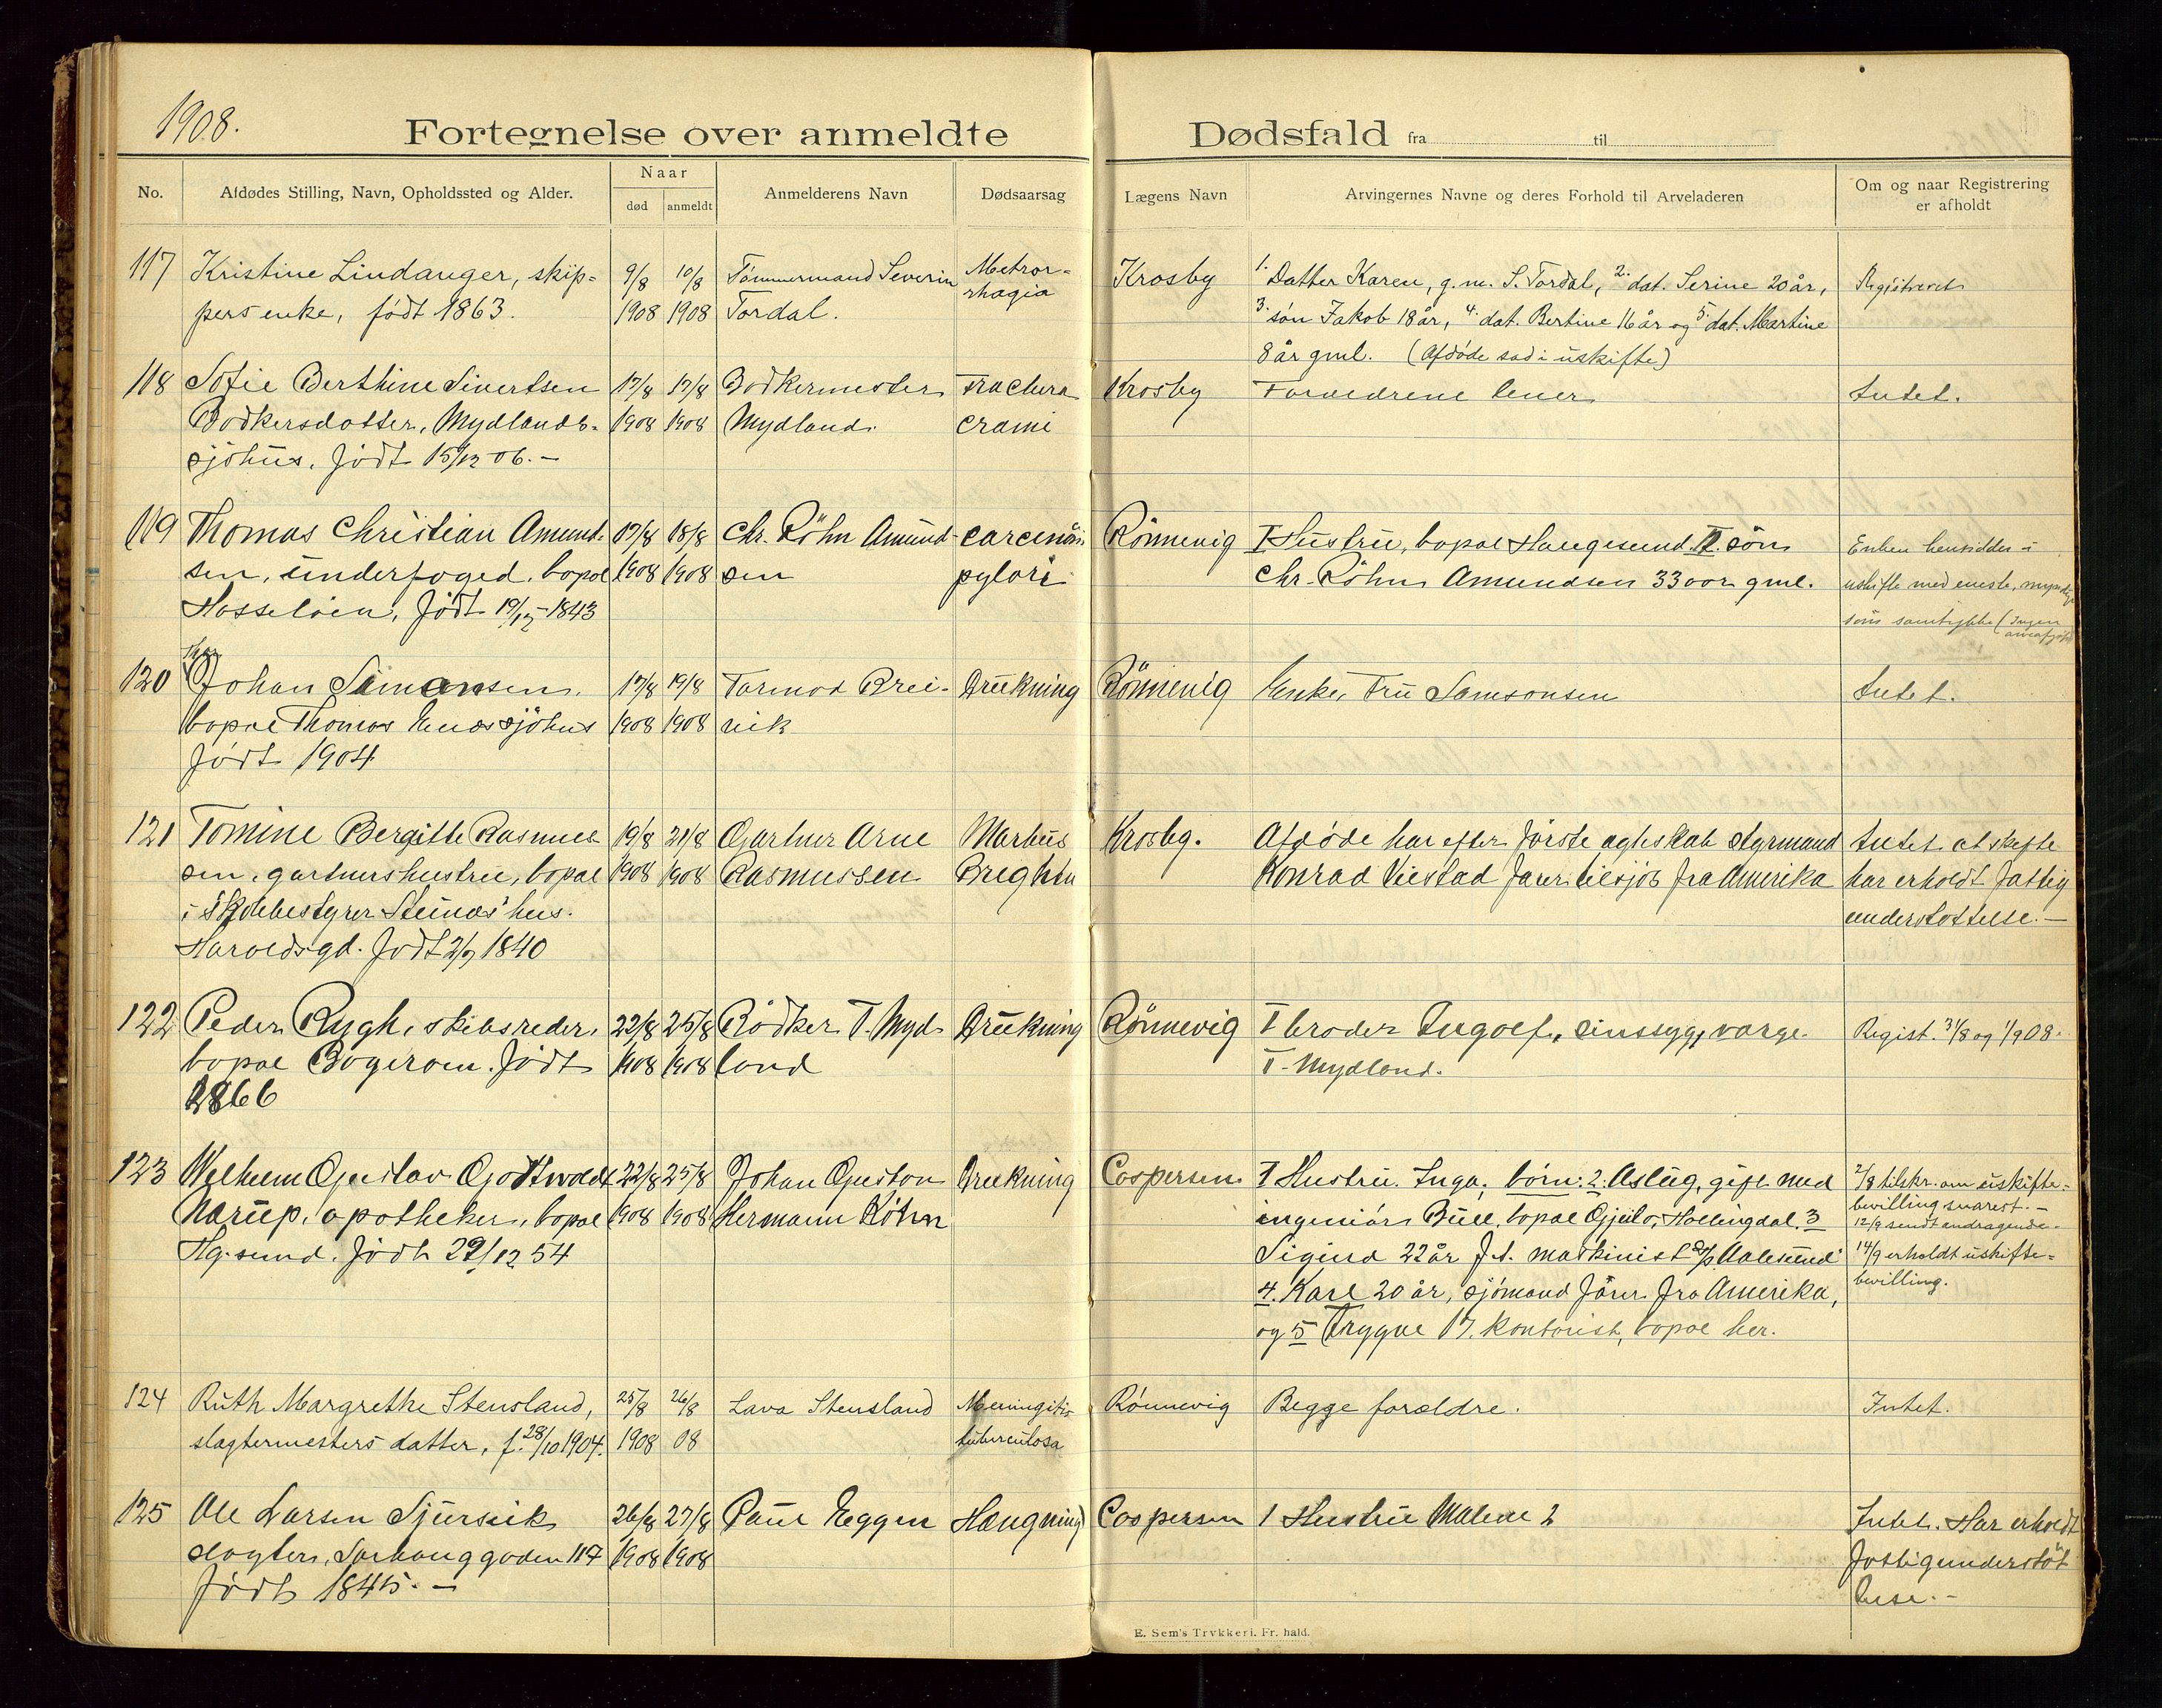 1908.
Fortegnelse over anmeldte Dødsfald fra til
No.
Afdødes Stilling, Navn, Opholdssted og Alder.
Naar
død
anmeldt
Anmelderens Navn
Dødsaarsag
Lægens Navn
Arvingernes Navne og deres Forhold til Arveladeren
Om og naar Registrering
er afholdt
117
Kristine Lindanger, skip-
pers enke, født 1863.
9/8
1908
10/8
1908
Tømmermand Severin
Tordal.
Metror-
rhagia
Krosby
1. Datter Karen, g. m. S. Tordal, 2. dat. Serine 20 år,
3. søn Jakob 18 år, 4. dat. Bertine 16 år og 5. dat. Martine
8 år gml. (Afdøde sad i uskifte)
Registreret
118
Sofie Berthine Sivertsen
Bødkersdatter, Mydlands-
sjøhus, født 15/12 06. -
17/8
1908
17/8
1908
Bødkermester
Mydland.
Fractura
crami
Krosby
Forældrene lever
Intet.
119
Thomas Christian Amund-
sen, underfoged, bopæl
Hasseløen, født 19/12 - 1843
17/8
1908
18/8
1908
Chr. Röhn Amund-
sen
carcinöm
pylori
Rönnevig
I Hustru, bopæl Haugesund. II. søn
Chr. Röhn Amundsen 33 aar gml.
Enken hensidder i
uskifte med eneste, myndige
søns samtykke (Ingen
arveafgift)
120
Thor
Johan Simonsen,
bopæl Thomas Enæs sjøhus
født 1904
17/8
1908
19/8
1908
Tormod Brei-
vik
Drukning
Rönnevig
Enke, Fru Samsonsen
Intet.
121
Tomine Bergitte Rasmus-
sen, gartnershustru, bopæl
i Skolebestyrer Steinnæs' hus.
Haraldsgd. Født 2/7 1840
19/8
1908
21/8
1908
Gartner Arne
Rasmussen
Morbus
Brightii
Krosby.
Afdøde har efter første ægteskab styrmand
Konrad Viestad farer tilsjøs fra Amerika
Intet at skifte
har erholdt fattig
understøttelse. -
122
Peder Rygh, skibsreder,
bopæl Bogeroen. Født
1866
22/8
1908
25/8
1908
Bødker T. Myd-
land
Drukning
Rönnevig
I broder Ingolf, sinssyg, værge
T. Mydland.
Regist. 31/8 og 1/9 08.
123
Wilhelm Gustav Gottwoldt
Narup, apotheker, bopæl
Hg.sund. Født 29/12 54
22/8
1908
25/8
1908
Johan Gustav
Hermann Röhn
Drukning
Caspersen
1 Hustru. Inga, børn: 2. Aslug, gift med
ingeniør Bull, bopæl Gjeilo, Hallingdal. 3
Sigurd 22 år f.t. maskinist D/S Aalesund
4. Karl 20 år, sjømand fårer fra Amerika,
og 5 Trygve 17. kontorist, bopæl her.
2/8 tilskr. om uskifte-
bevilling svarest. -
12/9 sendt andragende.
14/9 erholdt uskifte-
bevilling.
124
Ruth Margrethe Stensland,
slagtermesters datter, f. 28/10 1904.
25/8
1908
26/8
08
Lava Stensland
Meningitis
tuberculosa
Rönnevig
Begge forældre.
Intet.
125
Ole Larsen Sjursvik
slagter, Sørhauggaden 117
født 1845. -
26/8
1908
27/8
1908
Paul Eggen
Hængning
Caspersen
1 Hustru Malene 2
Intet. Har erholdt
fattigunderstøt
telse. -
E. Sem's Trykkeri. Fr. hald.